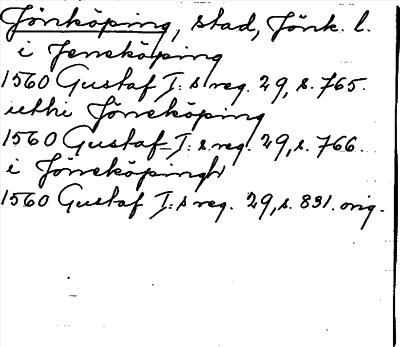 Jönköping, stad, Jönk. l.
i Jeneköping
1560 Gustaf I:s reg. 29, s. 765.
uthi Jöneköping
1560 Gustaf I:s reg. 29, s. 766.
i Jöneköpingh
1560 Gustaf I:s reg. 29, s. 831. orig.